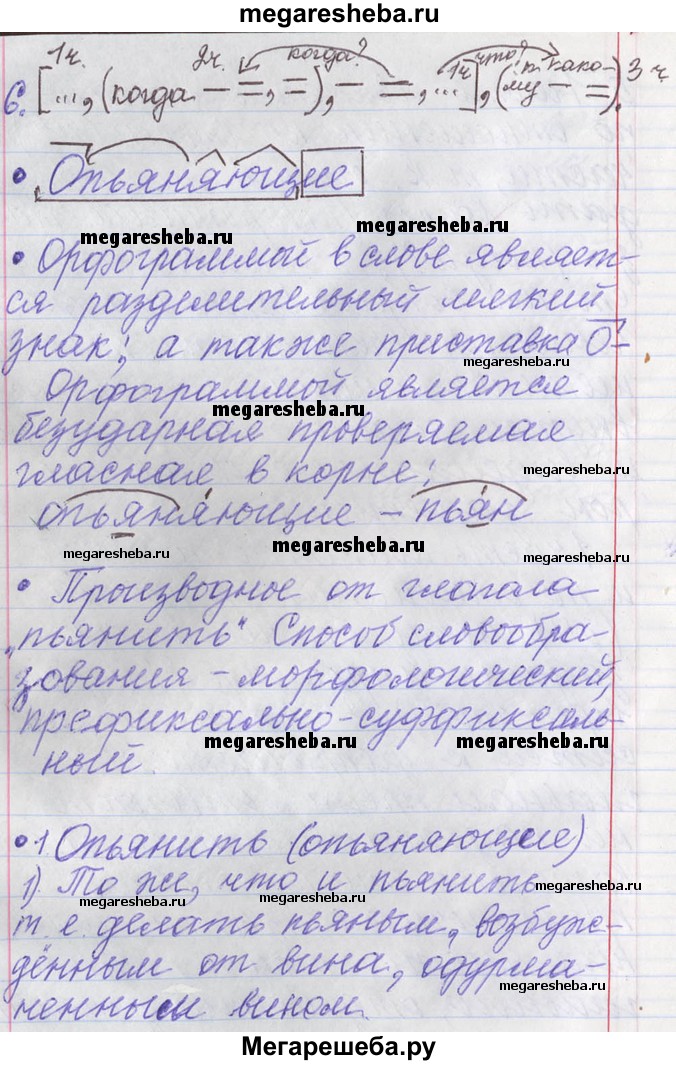 megaresheba.ru
1ч. 2ч. когда? 1ч что? 3ч
6. [..., (когда – =, =), – =, ...], (п. како-
му – =).
• Опьяняющие
megaresheba.ru
megaresheba.ru
• Орфограммой в слове являет-
ся разделительный мягкий
знак; а также приставка О-
megaresheba.ru
Орфограммой является
megaresheba.ru
безударная проверяемая
гласная в корне:
megaresheba.ru
опьяняющие – пьян
megaresheba.ru
megaresheba.ru
megaresheba.ru
• Производное от глагола
„пьянить“ Способ словообра-
зования – морфологический,
префиксально-суффиксаль-
megaresheba.ru
megaresheba.ru
ный.
• 1 Опьянить (опьяняющие)
1). То же, что и пьянить
megaresheba.ru
megaresheba.ru
megaresheba.ru
т. е. делать пьяным, возбуж-
дённым от вина, одурма-
megaresheba.ru
ненным вином.
Мегарешеба.ру